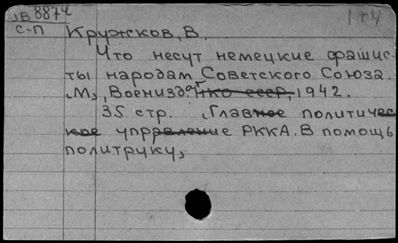 1В8874
1т4
С-П
Кружков, В.
Что несут немецкие фашис-
ты народам Советского Союза.
М., Воениздат НКО СССР, 1942.
35 стр. (Главное политичес
кое упрравление РККА. В помощь
политруку)